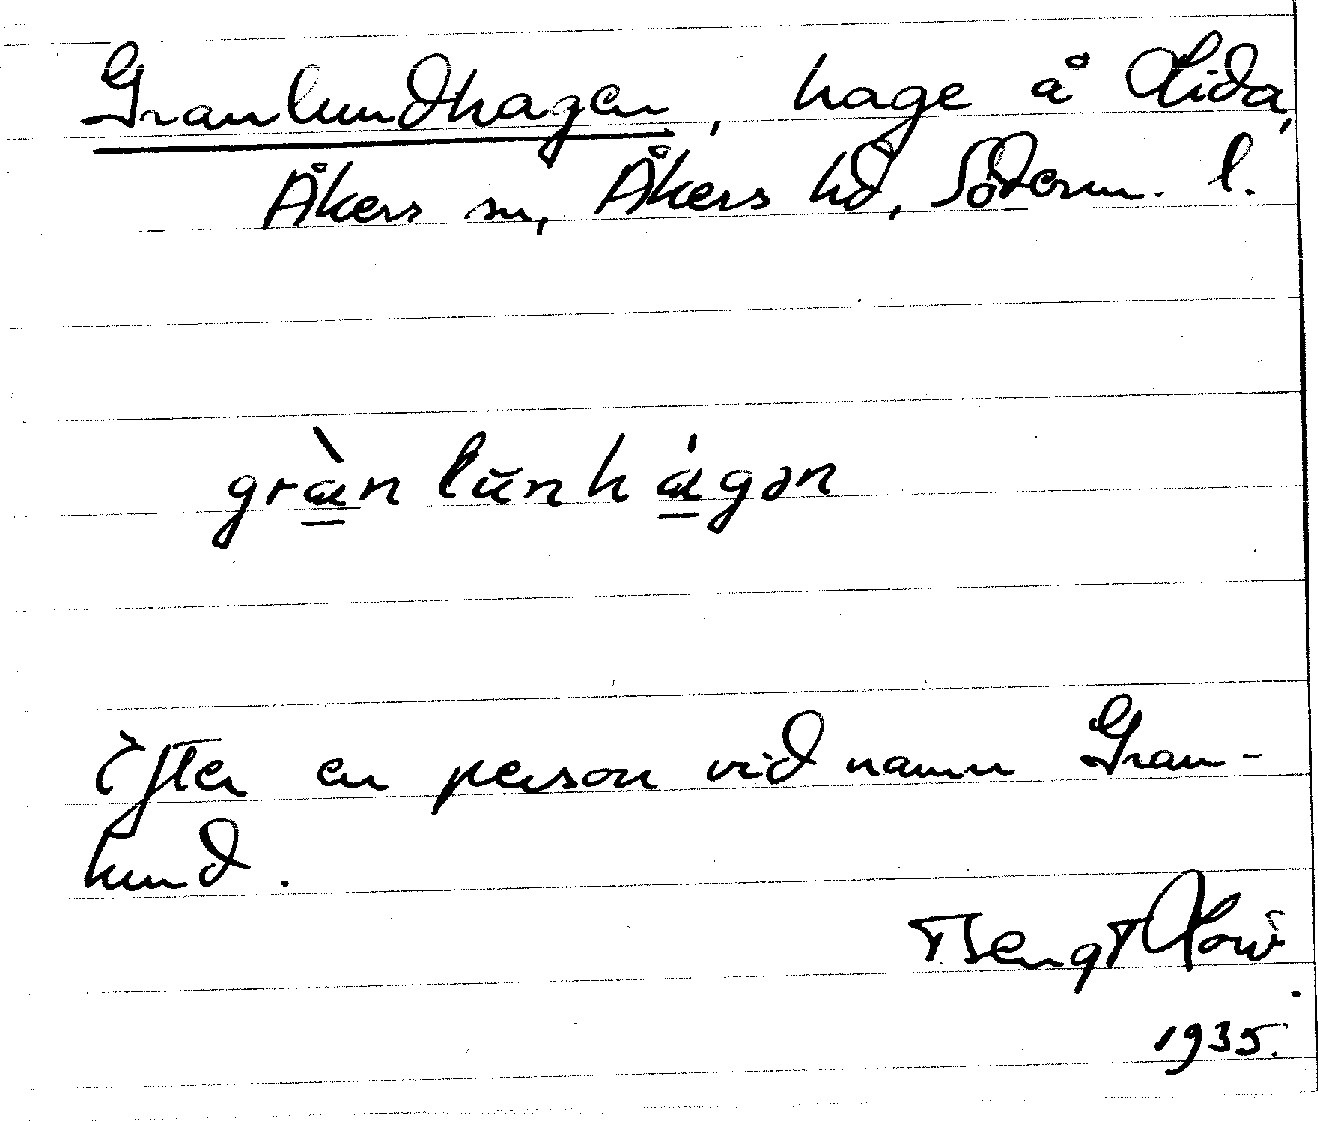 Granlundhagen, hage å Lida,
Åkers sn, Åkers hd, Söderm. l.
grànlŭnhágən
Efter en person vid namn Gran-
lund.
Bengt
1935.